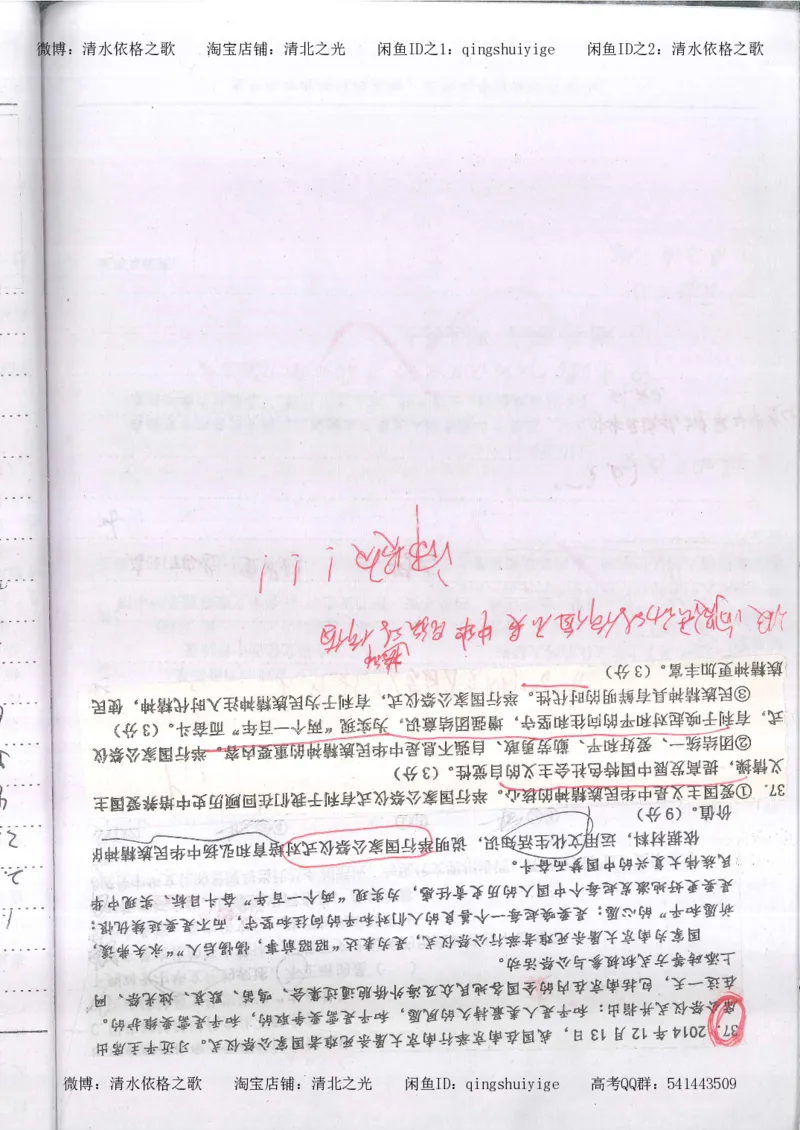 微博：清水依格之歌 淘宝店铺：清北之光 闲鱼ID之1：qingshuiyige 闲鱼ID之2：清水依格之歌
37. 2014年12月13日，我国在南京举行南京大屠杀死难者国家公祭仪式。习近平主席出
席公祭仪式并指出：和平是人类最持久的夙愿，和平是需要争取的，和平是需要维护的。
在这一天，包括南京在内的全国各地民众及海外侨胞通过集会、鸣笛、默哀、烛光祭、网
上添砖等方式积极参与公祭活动。
国家为南京大屠杀死难者举行公祭仪式，是为表达“昭昭前事，惕惕后人”“永矢弗谖，
祈愿和平”的心愿；是要唤起每一个善良的人们对和平的向往和坚守，而不是要延续仇恨；
是要更好地激发起每个中国人的历史责任感，为实现“两个一百年”奋斗目标、实现中华
民族伟大复兴的中国梦而奋斗。
依据材料，运用文化生活知识，说明举行国家公祭仪式对培育和弘扬中华民族精神的
价值。（9分）
37. ①爱国主义是中华民族精神的核心。举行国家公祭仪式有利于我们在回顾历史中培养爱国主
义情操，提高发展中国特色社会主义的自觉性。（3分）
②团结统一、爱好和平、勤劳勇敢、自强不息是中华民族精神的重要内容。举行国家公祭仪
式，有利于唤起对和平的向往和坚守，增强团结意识，为实现“两个一百年”而奋斗。（3分）
③民族精神具有鲜明的时代性。举行国家公祭仪式，有利于为民族精神注入时代精神，使民
族精神更加丰富。（3分）
微博：清水依格之歌 淘宝店铺：清北之光 闲鱼ID：qingshuiyige 高考QQ群：541443509